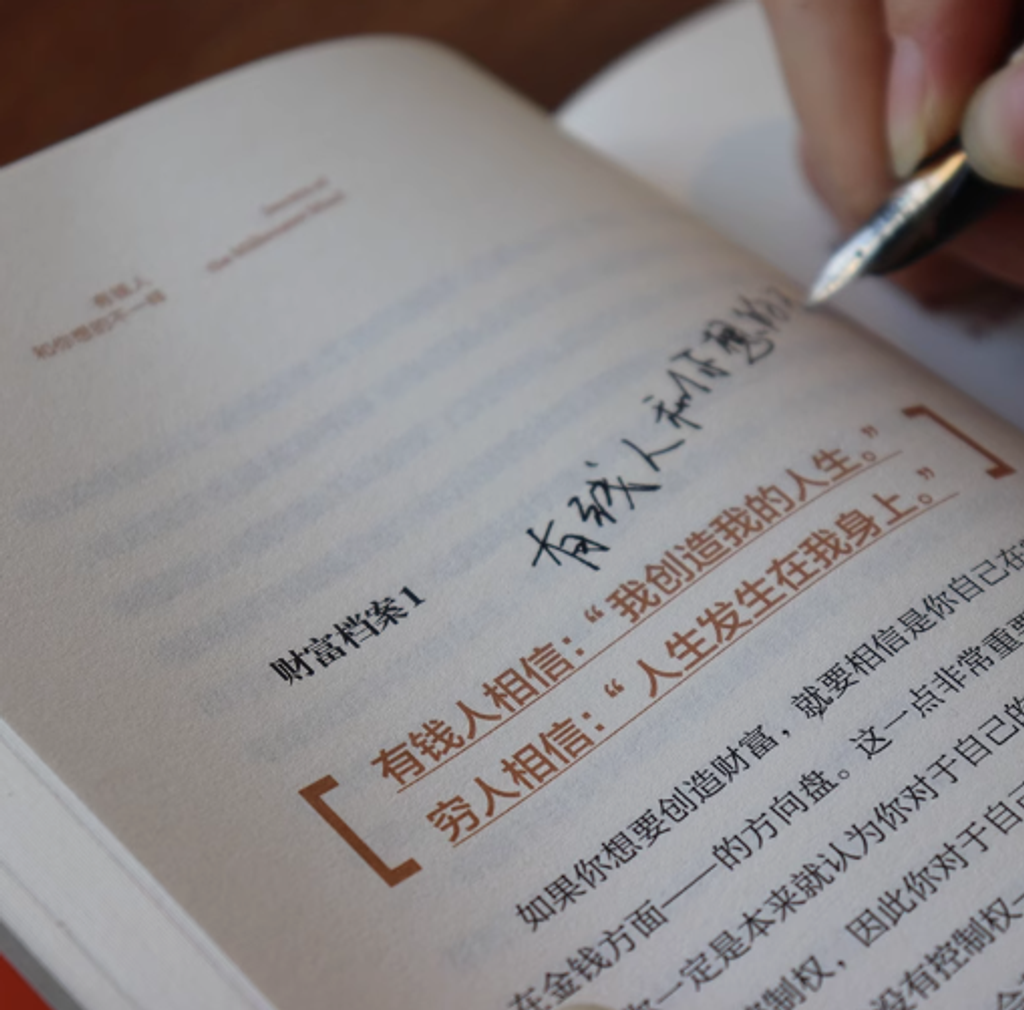 有钱人
和你想的不一样
Secrets of
the Millionaire Mind
有钱人和你想的
财富档案1
有钱人相信：“我创造我的人生。”
穷人相信：“人生发生在我身上。”
如果你想要创造财富，就要相信是你自己在
在金钱方面——的方向盘。这一点非常重要
你一定是本来就认为你对于自己的
控制权，因此你对于自己
没有控制权